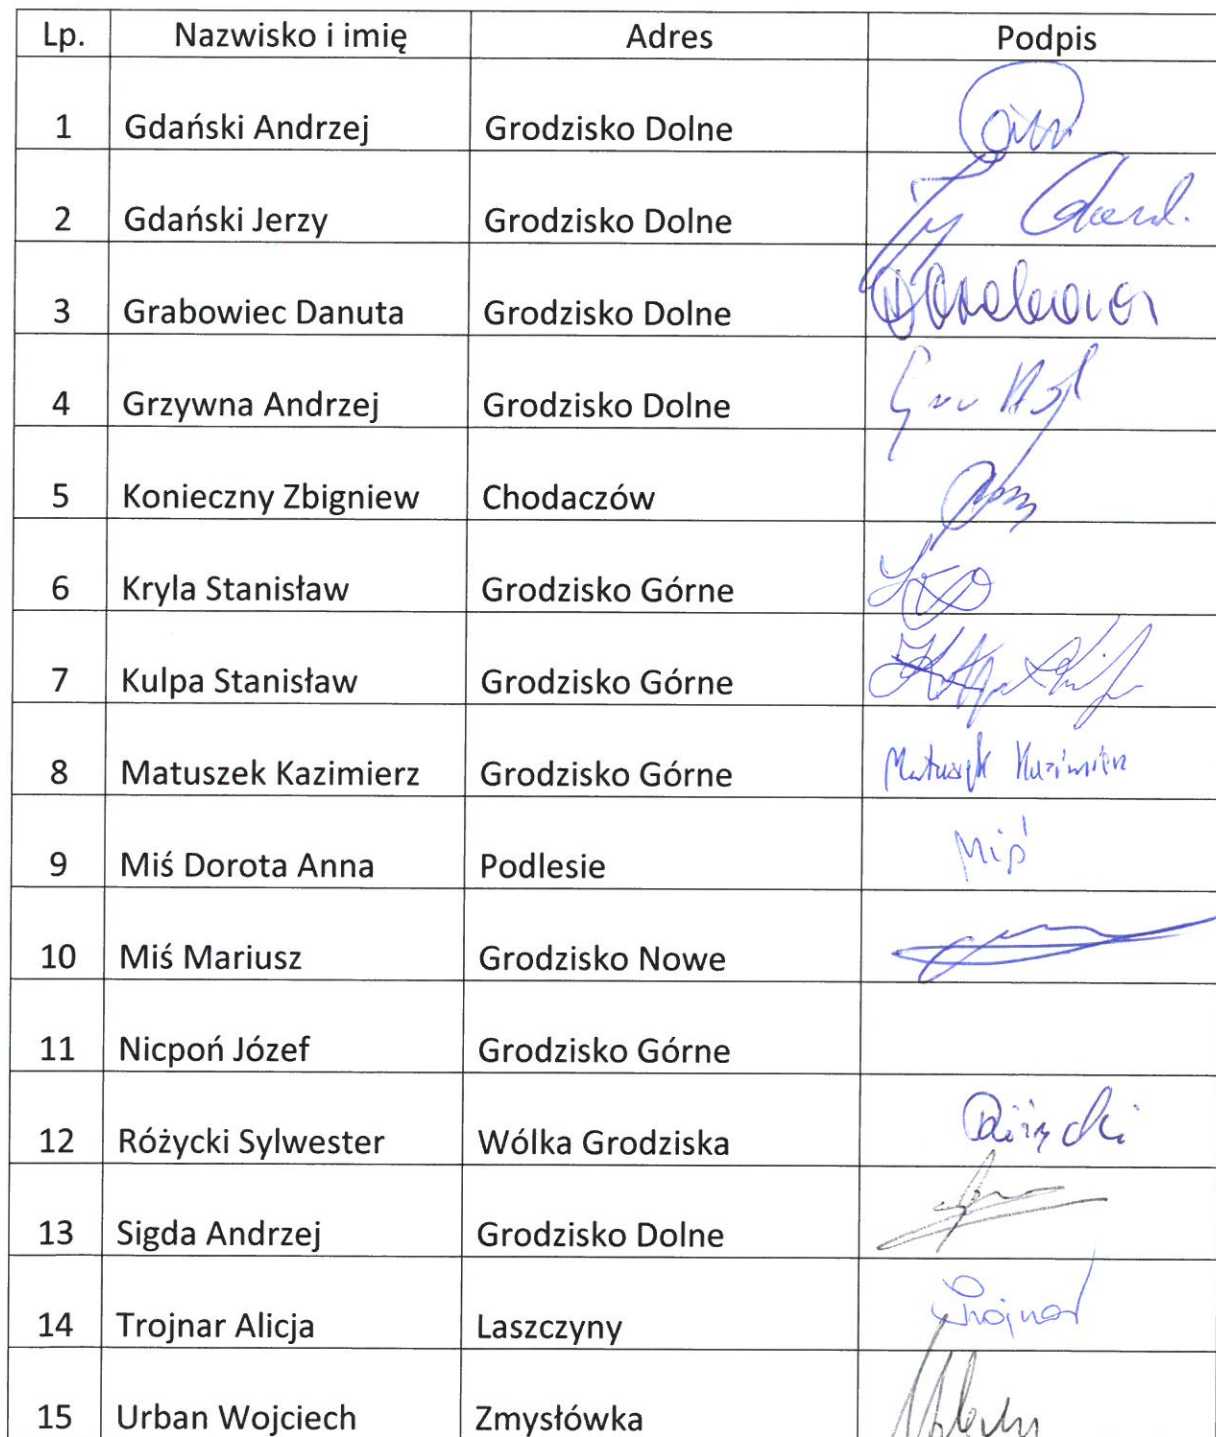 Lp. Nazwisko i imię Adres Podpis
1 Gdański Andrzej Grodzisko Dolne
2 Gdański Jerzy Grodzisko Dolne
3 Grabowiec Danuta Grodzisko Dolne
4 Grzywna Andrzej Grodzisko Dolne
5 Konieczny Zbigniew Chodaczów
6 Kryla Stanisław Grodzisko Górne
7 Kulpa Stanisław Grodzisko Górne
8 Matuszek Kazimierz Grodzisko Górne Matuszek Kazimierz
9 Miś Dorota Anna Podlesie Miś
10 Miś Mariusz Grodzisko Nowe
11 Nicpoń Józef Grodzisko Górne
12 Różycki Sylwester Wólka Grodziska
13 Sigda Andrzej Grodzisko Dolne
14 Trojnar Alicja Laszczyny Trojnar
15 Urban Wojciech Zmysłówka